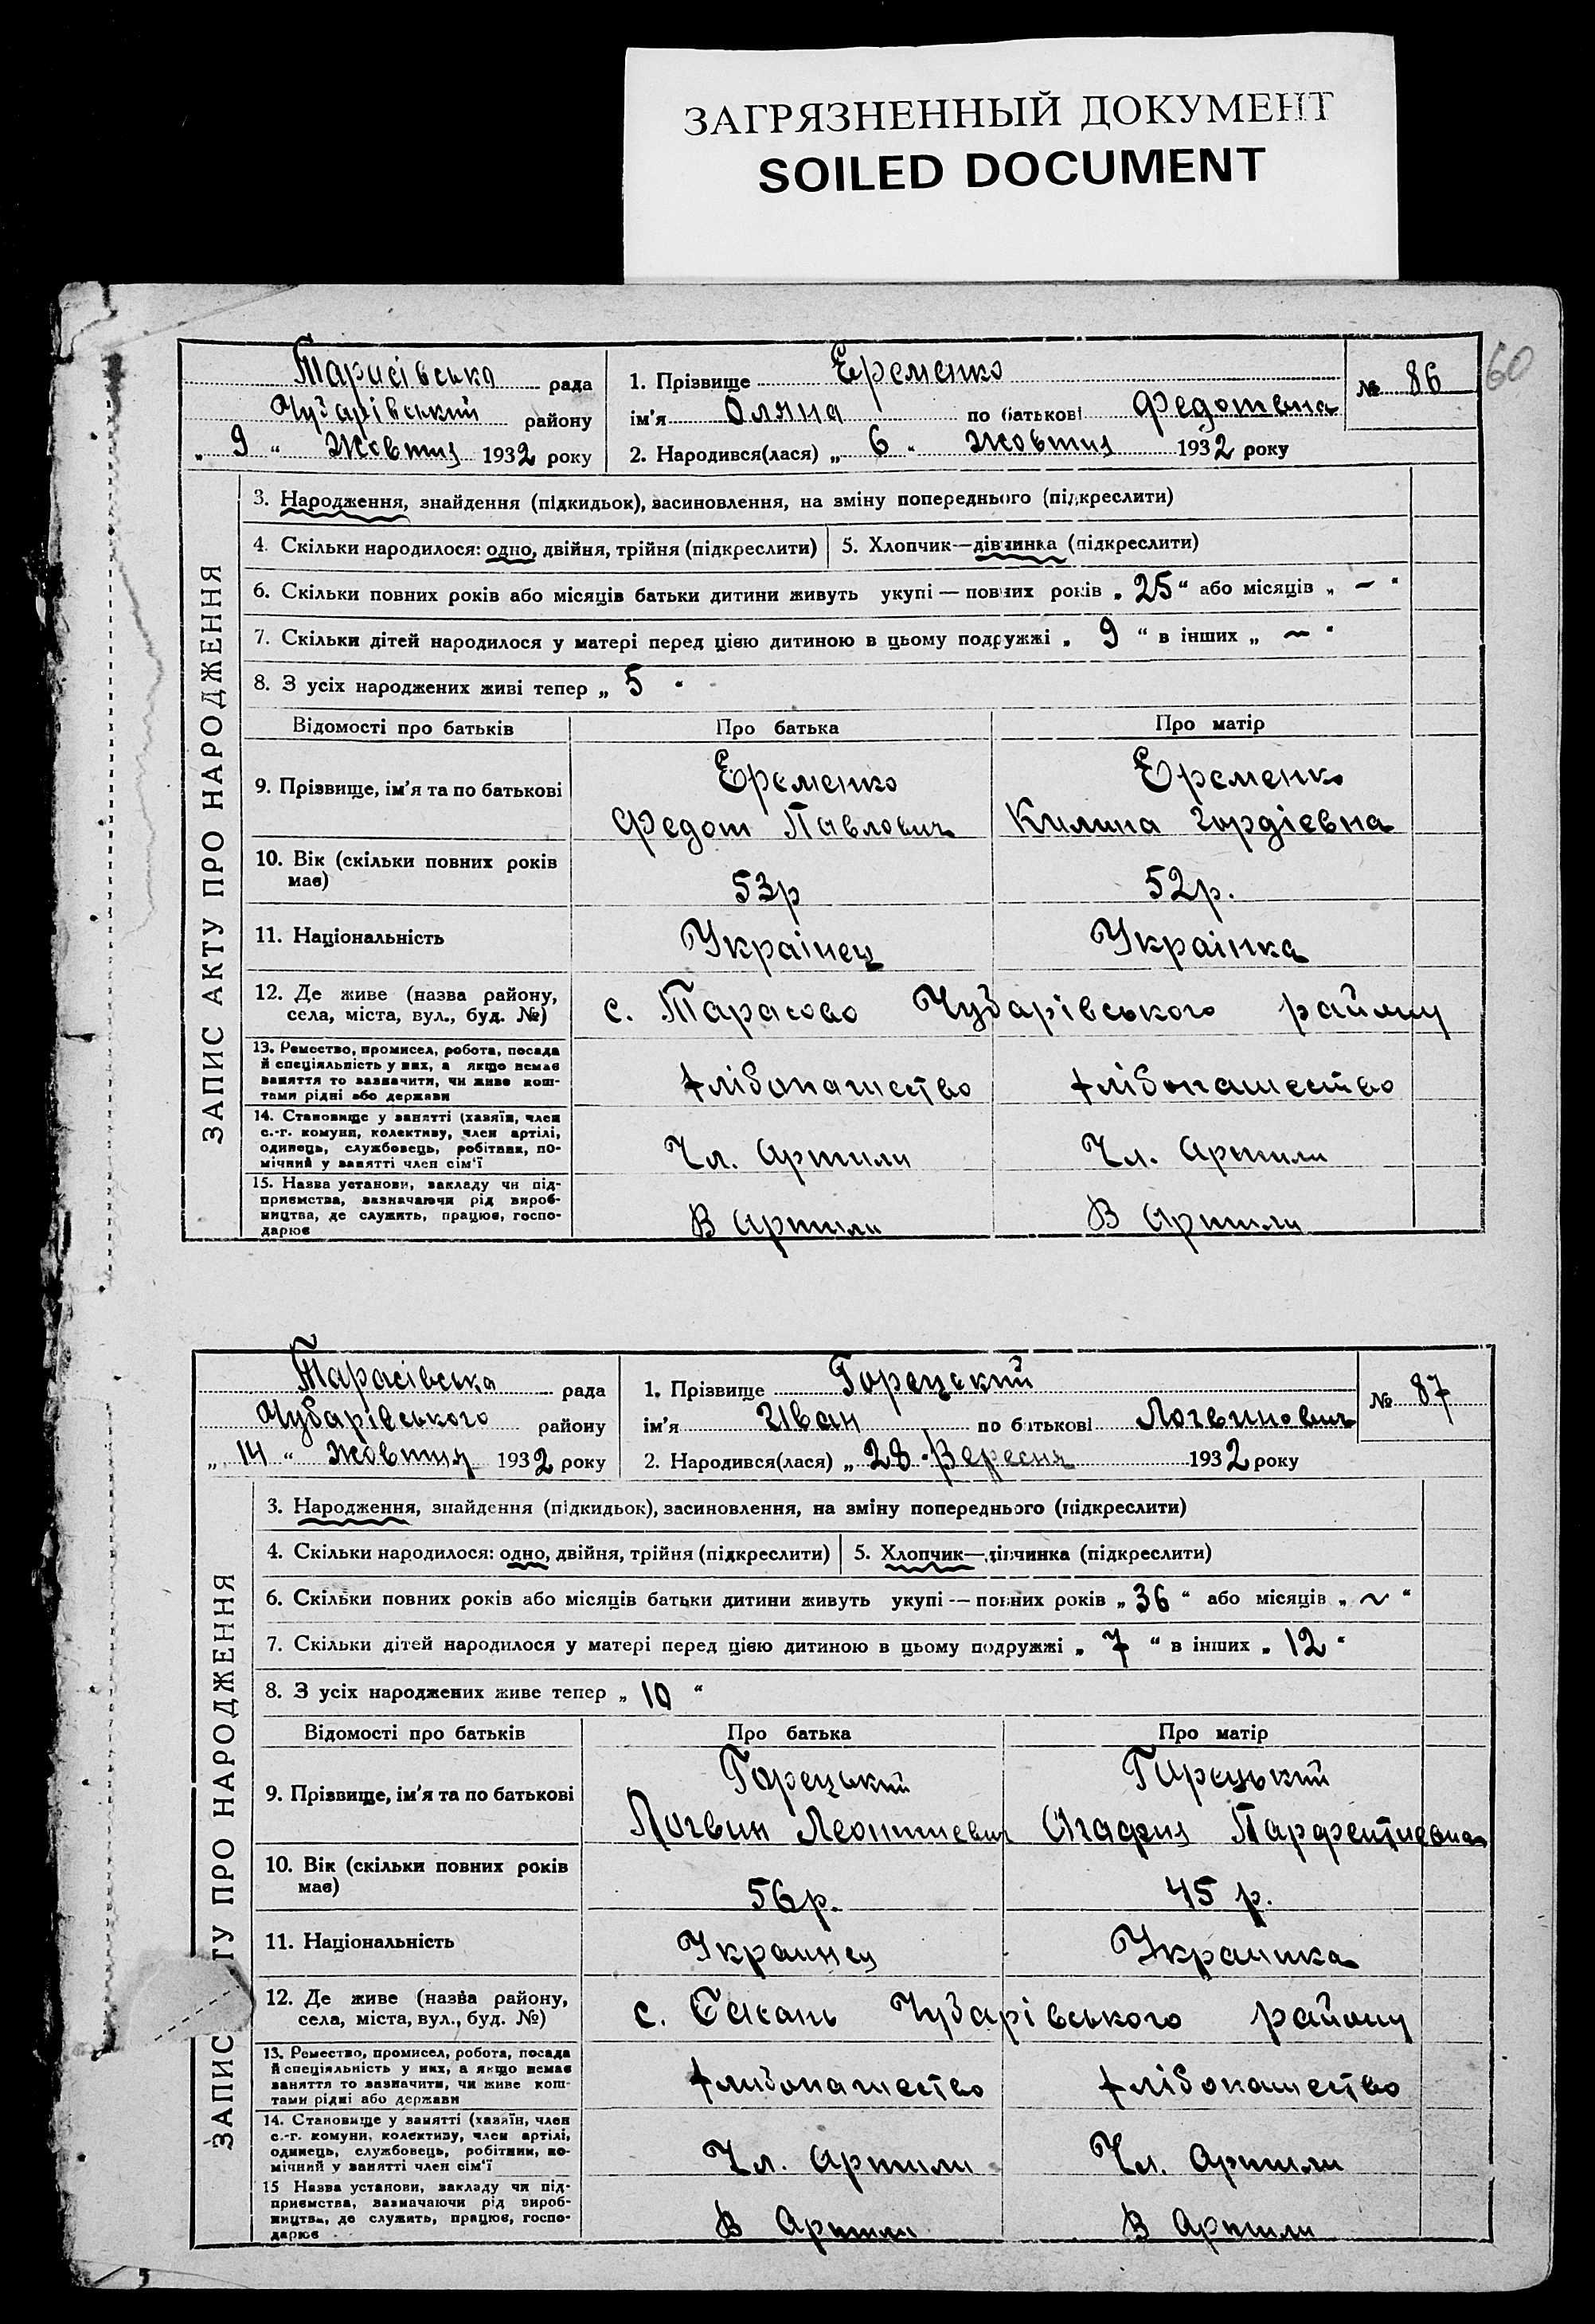 ЗАГРЯЗНЕННЫЙ ДОКУМЕНТ
SOILED DOCUMENT
60
Тарасівська рада
Чубарівський району
„ 9 “ Жовтня 1932 року
1. Прізвище Еременко
ім'я Оляна по батькові Федотовна
2. Народився(лася) „ 6 “ Жовтня 1932 року
№ 86
ЗАПИС АКТУ ПРО НАРОДЖЕННЯ
3. Народження, знайдення (підкидьок), засиновлення, на зміну попереднього (підкреслити)
4. Скільки народилося: одно, двійня, трійня (підкреслити) 5. Хлопчик—дівчинка (підкреслити)
6. Скільки повних років або місяців батьки дитини живуть укупі — повних років „ 25 “ або місяців „ — “
7. Скільки дітей народилося у матері перед цією дитиною в цьому подружжі „ 9 “ в інших „ — “
8. З усіх народжених живі тепер „ 5 “
Відомості про батьків Про батька Про матір
9. Прізвище, ім'я та по батькові
Еременко Еременко
Федот Павлович Килина Гордіевна
10. Вік (скільки повних років має)
53р 52р.
11. Національність Украінец Украінка
12. Де живе (назва району, села, міста, вул., буд. №)
с. Тарасово Чубарівського району
13. Ремество, промисел, робота, посада
й спеціяльність у них, а якщо немає
заняття то зазначити, чи живе кош-
тами рідні або держави
хлібопашество хлібопашество
14. Становище у занятті (хазяїн, член
с.-г. комуни, колективу, член артілі,
одинець, службовець, робітник, по-
мічний у занятті член сім'ї
Чл. Артили Чл. Артили
15. Назва установи, закладу чи під-
приємства, зазначаючи рід вироб-
ництва, де служить, працює, госпо-
дарює
В Артили В Артили
Тарасівська рада
Чубарівського району
„ 14 “ Жовтня 1932 року
1. Прізвище Горецький
ім'я Іван по батькові Логвинович
2. Народився(лася) „ 28 “ Вересня 1932 року
№ 87
ЗАПИС АКТУ ПРО НАРОДЖЕННЯ
3. Народження, знайдення (підкидьок), засиновлення, на зміну попереднього (підкреслити)
4. Скільки народилося: одно, двійня, трійня (підкреслити) 5. Хлопчик—дівчинка (підкреслити)
6. Скільки повних років або місяців батьки дитини живуть укупі — повних років „ 36 “ або місяців „ ~ “
7. Скільки дітей народилося у матері перед цією дитиною в цьому подружжі „ 7 “ в інших „ 12 “
8. З усіх народжених живе тепер „ 10 “
Відомості про батьків Про батька Про матір
9. Прізвище, ім'я та по батькові
Горецький Горецький
Логвин Леонтиевич Агафия Парфентиевна
10. Вік (скільки повних років має)
56р. 45 р.
11. Національність Украинец Украинка
12. Де живе (назва району, села, міста, вул., буд. №)
с. Чубарівського району
13. Ремество, промисел, робота, посада
й спеціяльність у них, а якщо немає
заняття то зазначити, чи живе кош-
тами рідні або держави
хлибопашество хлібопашество
14. Становище у занятті (хазяїн, член
с.-г. комуни, колективу, член артілі,
одинець, службовець, робітник, по-
мічний у занятті член сім'ї
Чл. Артили Чл. Артили
15 Назва установи, закладу чи під-
приємства, зазначаючи рід вироб-
ництва, де служить, працює, госпо-
дарює
В Артили В Артили